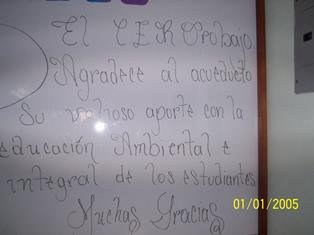 El CER Orobajo
Agradece al acueducto
Su valioso aporte con la
educación Ambiental e
integral de los estudiantes
Muchas Gracias
01/01/2005